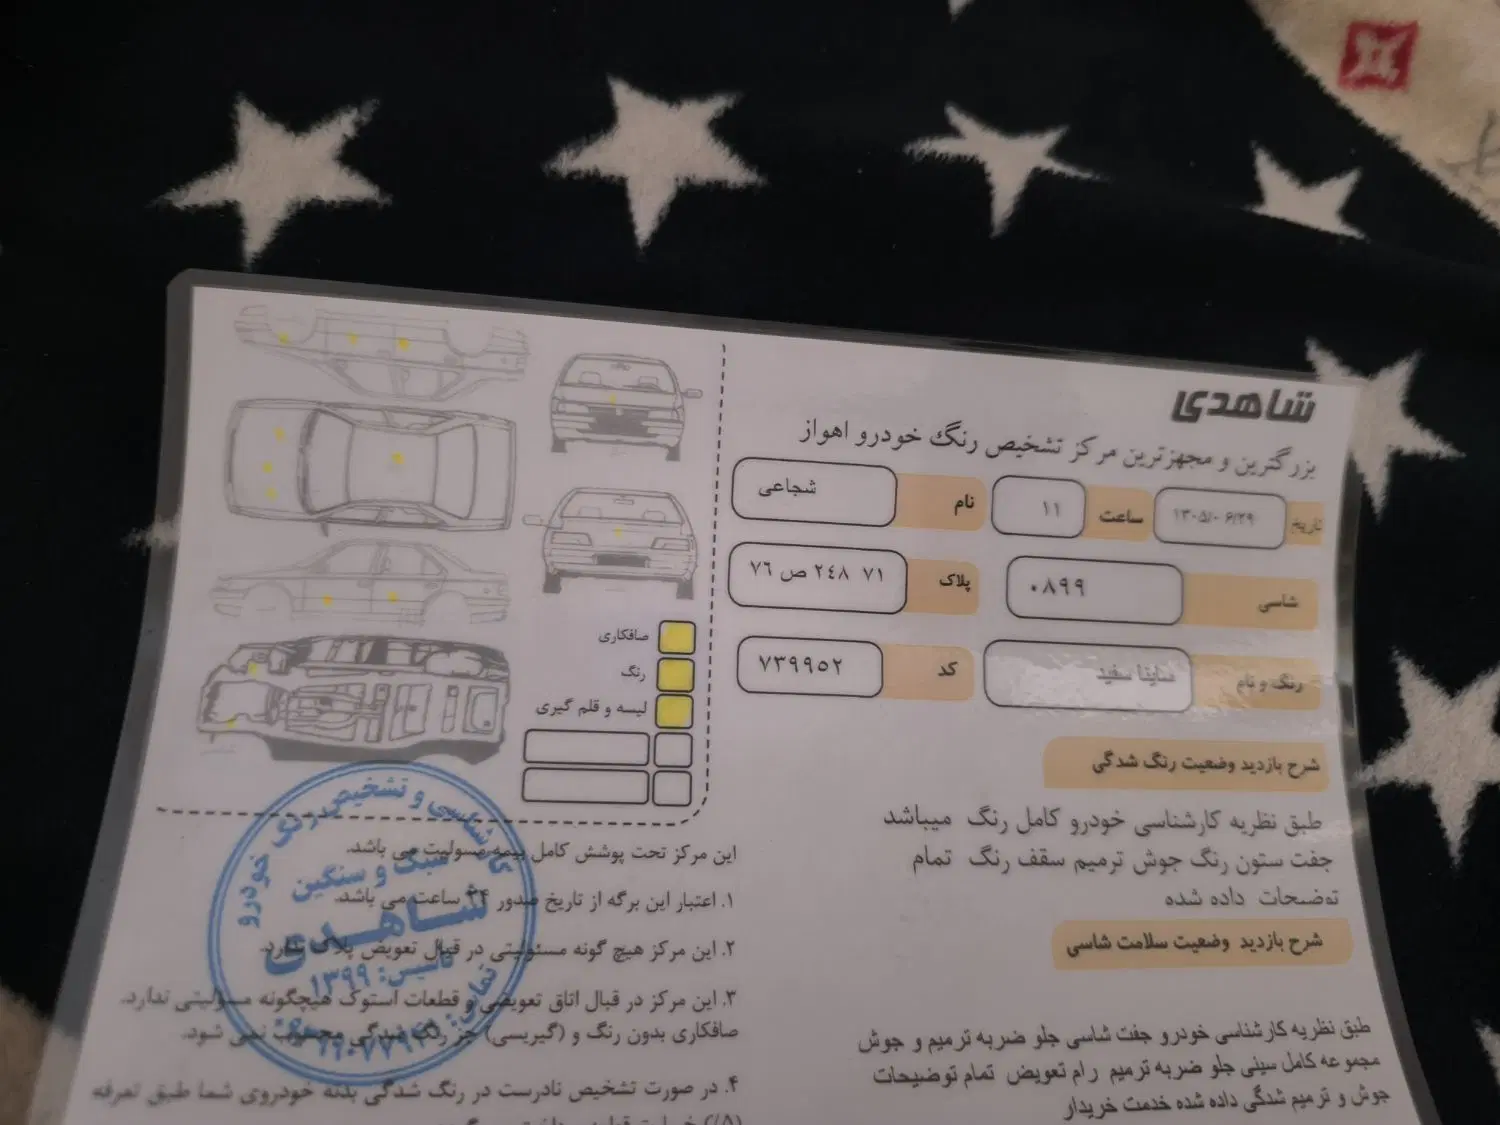 شاهدی
بزرگترین و مجهزترین مرکز تشخیص رنگ خودرو اهواز
تاریخ ۱۴۰۵/۰۶/۲۹ ساعت ۱۱ نام شجاعی
شاسی ۰۸۹۹ پلاک ۷۱ ۲٤۸ ص ۷۶
رنگ و نام ساینا سفید کد ۷۳۹۹۵۲
شرح بازدید وضعیت رنگ شدگی
طبق نظریه کارشناسی خودرو کامل رنگ میباشد
جفت ستون رنگ جوش ترمیم سقف رنگ تمام
توضحات داده شده
شرح بازدید وضعیت سلامت شاسی
طبق نظریه کارشناسی خودرو جفت شاسی جلو ضربه ترمیم و جوش
مجموعه کامل سینی جلو ضربه ترمیم رام تعویض تمام توضیحات
جوش و ترمیم شدگی داده شده خدمت خریدار
صافکاری
رنگ
لیسه و قلم گیری
این مرکز تحت پوشش کامل بیمه مسولیت می باشد.
۱. اعتبار این برگه از تاریخ صدور ۲۴ ساعت می باشد.
۲. این مرکز هیچ گونه مسئولیتی در قبال تعویض پلاک ندارد.
۳. این مرکز در قبال اتاق تعویضی و قطعات استوک هیچگونه مسؤلیتی ندارد.
صافکاری بدون رنگ و (گیریسی) جز رنگ شدگی محسوب نمی شود.
۴. در صورت تشخیص نادرست در رنگ شدگی بدنه خودروی شما طبق تعرفه
کارشناسی و تشخیص رنگ خودرو
سبک و سنگین
شاهدی
تاسیس: ۱۳۹۹